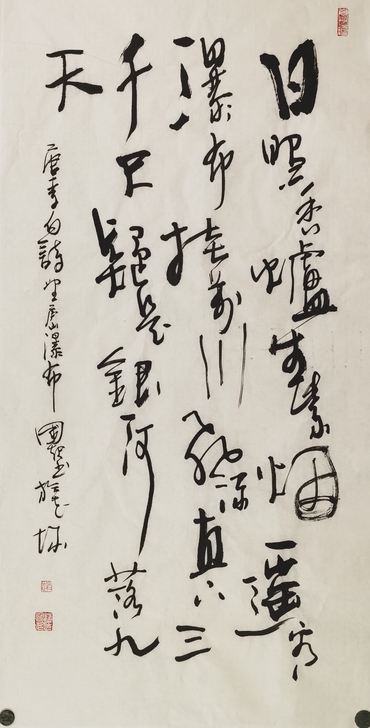 日照香爐生紫烟遥看
瀑布挂前川飛流直下三
千尺疑是銀河落九
天
唐李白詩望廬山瀑布